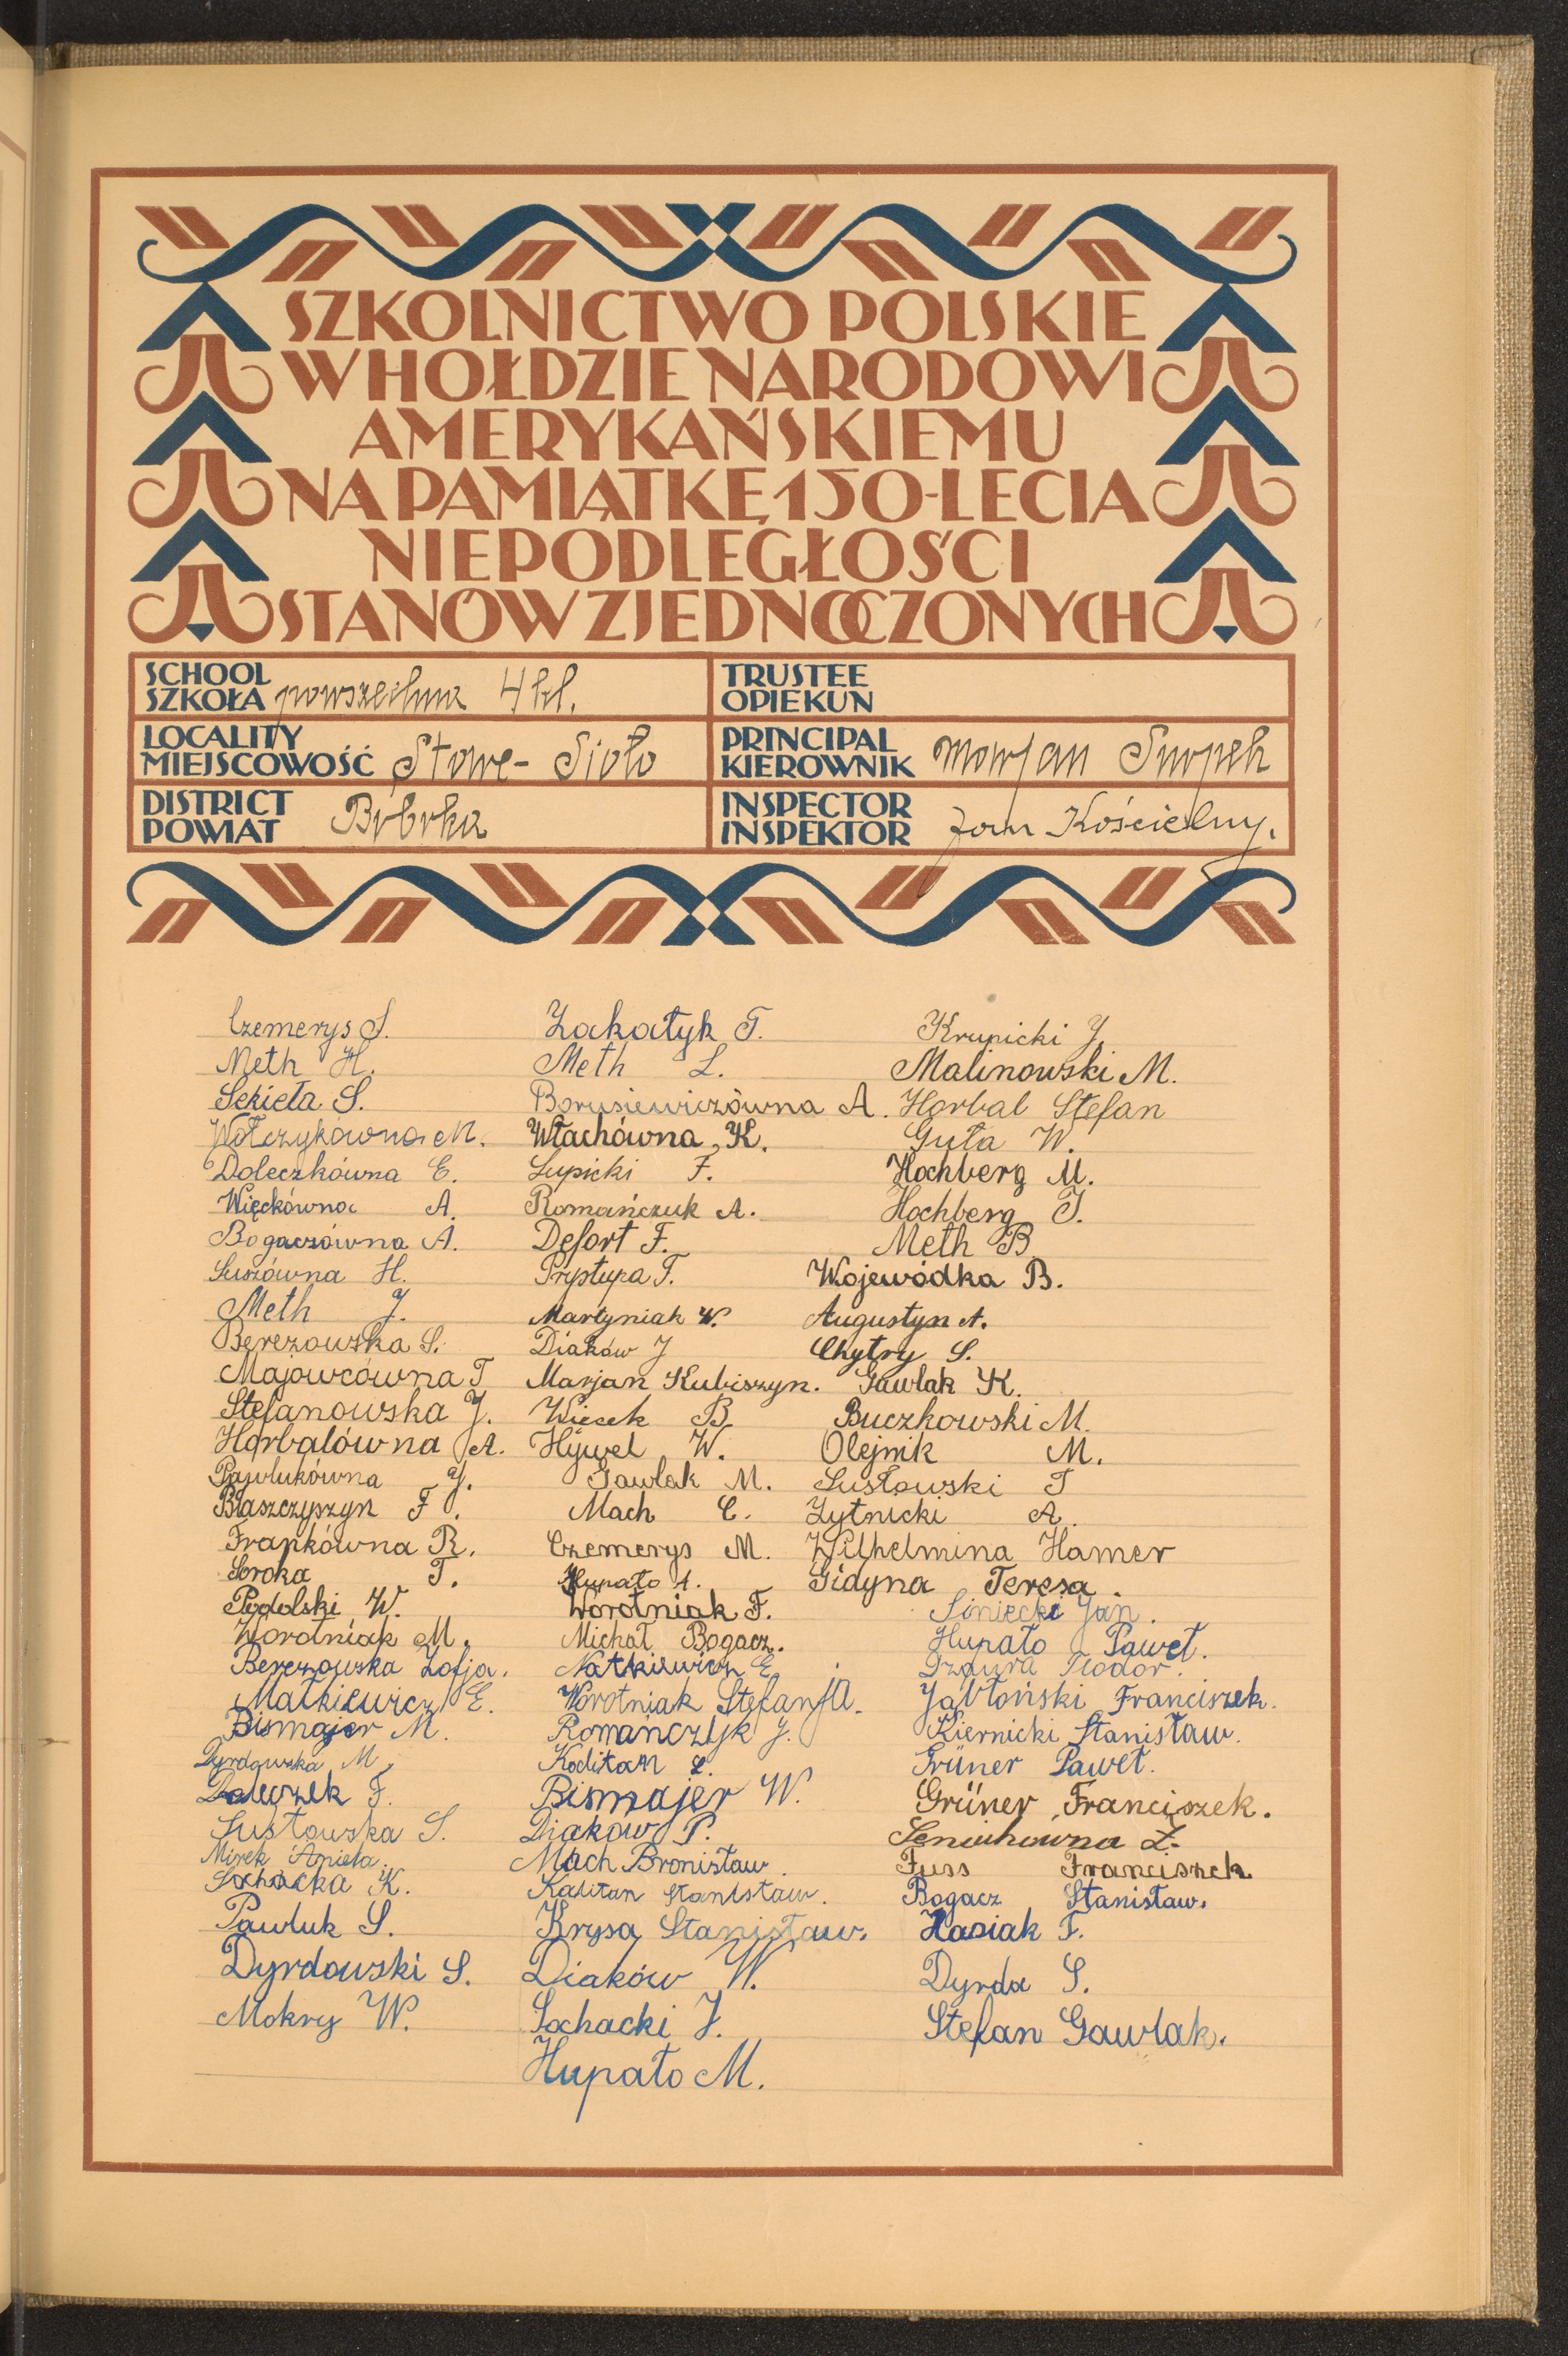 SZKOLNICTWO POLSKIE
W HOŁDZIE NARODOWI
AMERYKAŃSKIEMU
NA PAMIĄTKĘ 150-LECIA
NIEPODLEGŁOŚCI
STANÓW ZJEDNOCZONYCH
SCHOOL
SZKOŁA powszechna 4 kl.
TRUSTEE
OPIEKUN
LOCALITY
MIEJSCOWOŚĆ Stare-Sioło
PRINCIPAL
KIEROWNIK Marjan Snopek
DISTRICT
POWIAT Bóbrka
INSPECTOR
INSPEKTOR Jan Kościelny.
Czemerys S.
Meth H.
Sekieta S.
Wołczykówna M.
Doleczkówna E.
Więckówna A.
Bogaczówna A.
Susówna H.
Meth J.
Berezowska S.
Majowcówna T
Stefanowska J.
Horbalówna A.
Pawlukówna J.
Błaszczyszyn F.
Frankówna R.
Soroka T.
Podolski W.
Worotniak M.
Berezowska Zofja.
Matkiewicz E.
Bismajer M.
Dyrdowska M.
Doleczek F.
Susłowska S.
Mirek Aniela.
Sochacka K.
Pawluk S.
Dyrdowski S.
Mokry W.
Zakatyk T.
Meth L.
Borusiewiczówna A.
Włachówna K.
Łupicki F.
Romańczuk A.
Defort F.
Prystupa T.
Martyniak W.
Diaków J
Marjan Kubiszyn.
Wiecek B
Hywel W.
Gawlak M.
Mach C.
Czemerys M.
Hupało A.
Worotniak F.
Michał Bogacz.
Natkiewicz E
Worotniak StefanjA.
Romańczyk J.
Kaditan L.
Bismajer W.
Diakow P.
Mach Bronisław.
Kalitan Stanisław.
Krysa Stanisław.
Diaków W.
Sochacki J.
Hupało M.
Krupicki J.
Malinowski M.
Horbal Stefan
Guła W.
Hochberg M.
Hochberg J.
Meth B
Wojewódka B.
Augustyn A.
Chytry S.
Gawlak K.
Buczkowski M.
Olejnik M.
Susłowski T
Żytnicki A.
Wilhelmina Hamer
Gidyna Teresa.
Siniecki Jan.
Hupało Paweł.
Dziura Teodor.
Jabłoński Franciszek.
Kiernicki Stanisław.
Grüner Paweł.
Grüner Franciszek.
Seniuhówna Z.
Fuss Franciszek
Bogacz Stanisław.
Hasiak F.
Dyrda S.
Stefan Gawlak.